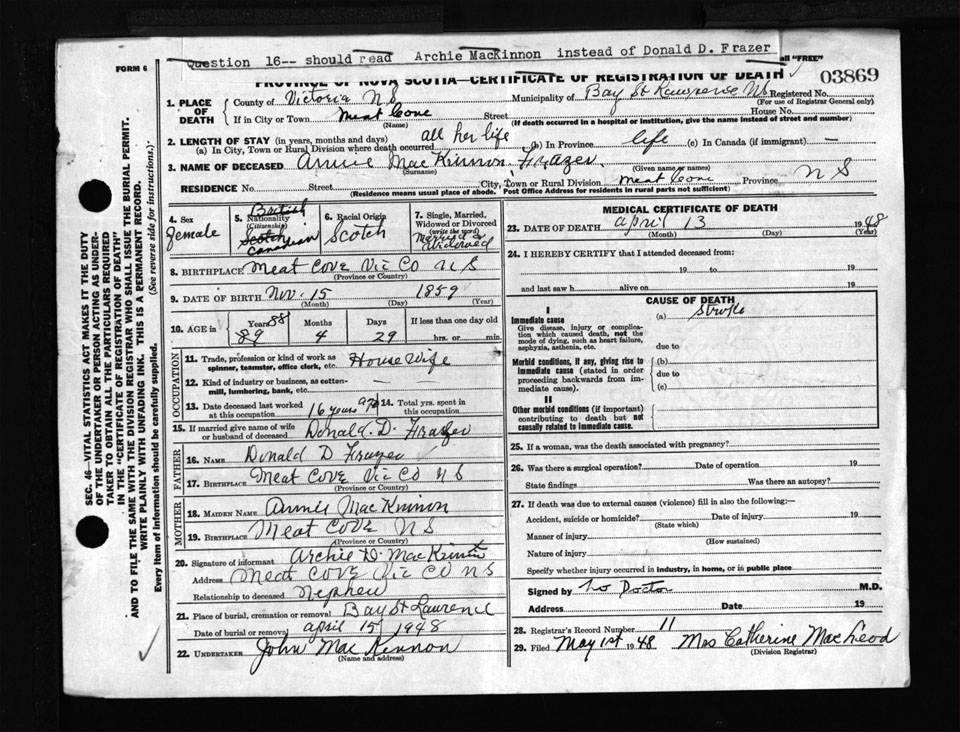 Question 16-- should read Archie MacKinnon instead of Donald D. Frazer
FORM 6
all "FREE"
PROVINCE OF NOVA SCOTIA—CERTIFICATE OF REGISTRATION OF DEATH
03869
1. PLACE OF DEATH
County of Victoria N S
Municipality of Bay St Lawrence NS Registered No.
(For use of Registrar General only)
If in City or Town Meat Cove Street House No.
(Name) (If death occurred in a hospital or institution, give the name instead of street and number)
2. LENGTH OF STAY (in years, months and days)
(a) In City, Town or Rural Division where death occurred all her life (b) In Province life (c) In Canada (if immigrant) —
3. NAME OF DECEASED Annie MacKinnon Frazer
(Surname) (Given name or names)
RESIDENCE No. Street City, Town or Rural Division Meat Cove Province N S
(Residence means usual place of abode. Post Office Address for residents in rural parts not sufficient)
4. Sex
Female
5. Nationality
(Citizenship)
British
Scotch
Canadian
6. Racial Origin
Scotch
7. Single, Married, Widowed or Divorced
(write the word)
Married &
Widowed
8. BIRTHPLACE Meat Cove Vic Co N S
(Province or Country)
9. DATE OF BIRTH Nov. 15 1859
(Month) (Day) (Year)
10. AGE in
Years 88
89
Months
4
Days
29
If less than one day old
hrs. or min.
OCCUPATION
11. Trade, profession or kind of work as spinner, teamster, office clerk, etc. House Wife
12. Kind of industry or business, as cotton-mill, lumbering, bank, etc. —
13. Date deceased last worked at this occupation 16 years ago
14. Total yrs. spent in this occupation
15. If married give name of wife or husband of deceased Donald. D. Frazer
FATHER
16. Name Donald D Frazer
17. Birthplace Meat Cove Vic Co N S
(Province or Country)
MOTHER
18. Maiden Name Annie MacKinnon
19. Birthplace Meat Cove N S
(Province or Country)
20. Signature of informant Archie D. MacKinnon
Address Meat Cove Vic Co N S
Relationship to deceased Nephew
21. Place of burial, cremation or removal Bay St Lawrence
Date of burial or removal April 15 1948
22. UNDERTAKER John MacKinnon
(Name and address)
MEDICAL CERTIFICATE OF DEATH
23. DATE OF DEATH April 13 1948
(Month) (Day) (Year)
24. I HEREBY CERTIFY that I attended deceased from:
19 to 19
and last saw h alive on 19
CAUSE OF DEATH
I
Immediate cause
Give disease, injury or complication which caused death, not the mode of dying, such as heart failure, asphyxia, asthenia, etc.
(a) Stroke
due to
Morbid conditions, if any, giving rise to immediate cause (stated in order proceeding backwards from immediate cause).
(b)
due to
(c)
II
Other morbid conditions (if important) contributing to death but not causally related to immediate cause.
25. If a woman, was the death associated with pregnancy?
26. Was there a surgical operation? Date of operation 19
State findings Was there an autopsy?
27. If death was due to external causes (violence) fill in also the following:—
Accident, suicide or homicide? Date of injury 19
(State which)
Manner of injury
(How sustained)
Nature of injury
Specify whether injury occurred in industry, in home, or in public place
Signed by no Doctor M.D.
Address Date 19
28. Registrar's Record Number 11
29. Filed May 1st 1948 Mrs Catherine MacLeod
(Division Registrar)
SEC. 46—VITAL STATISTICS ACT MAKES IT THE DUTY
OF THE UNDERTAKER OR PERSON ACTING AS UNDER-
TAKER TO OBTAIN ALL THE PARTICULARS REQUIRED
IN THE "CERTIFICATE OF REGISTRATION OF DEATH"
AND TO FILE THE SAME WITH THE DIVISION REGISTRAR WHO SHALL ISSUE THE BURIAL PERMIT.
WRITE PLAINLY WITH UNFADING INK. THIS IS A PERMANENT RECORD.
Every item of information should be carefully supplied. (See reverse side for instructions.)